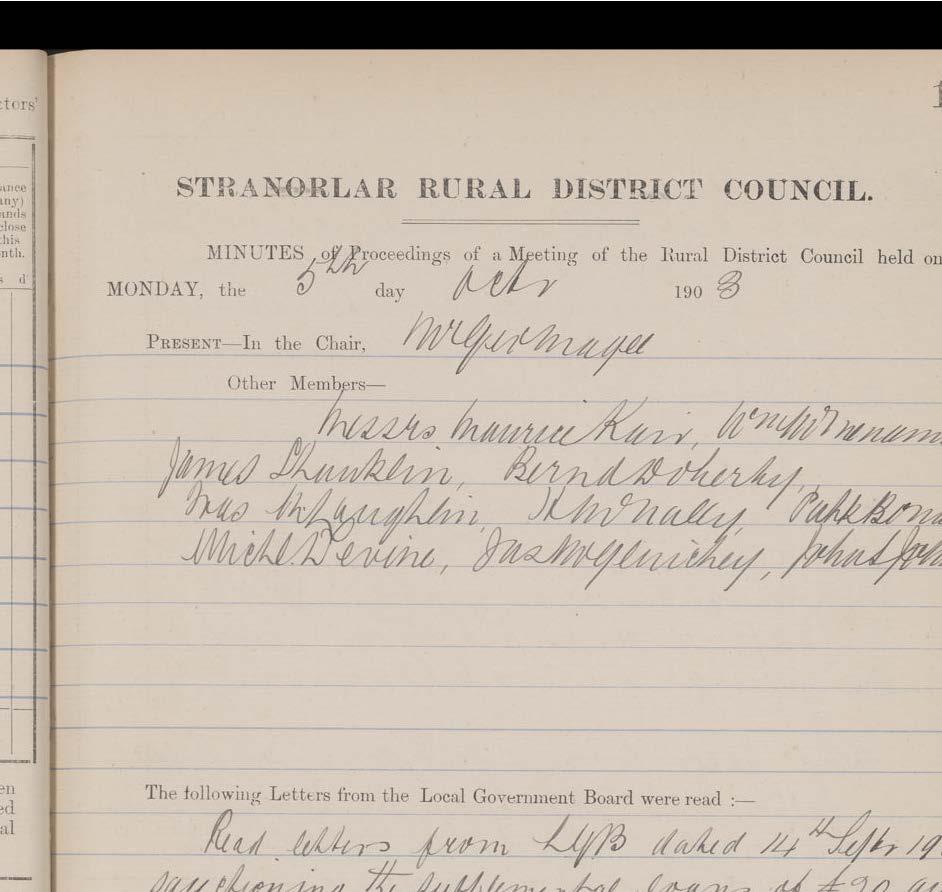 ctors'
ance
any)
ands
close
this
nth.
s d
en
ed
al
1
STRANORLAR RURAL DISTRICT COUNCIL.
MINUTES of Proceedings of a Meeting of the Rural District Council held on
MONDAY, the 5th day Octr 1903
PRESENT—In the Chair, Mr Geo Magee
Other Members—
Messrs Maurice Kerr, Wm McMenam
James Shanklin, Bernd Doherty,
McLaughlin, McNally, Patk Bon
Michl. Devine, Jas McGlinchey, John
The following Letters from the Local Government Board were read :—
Read letters from LGB dated 14th Septr 19
sanctioning the supplemental loans of £30